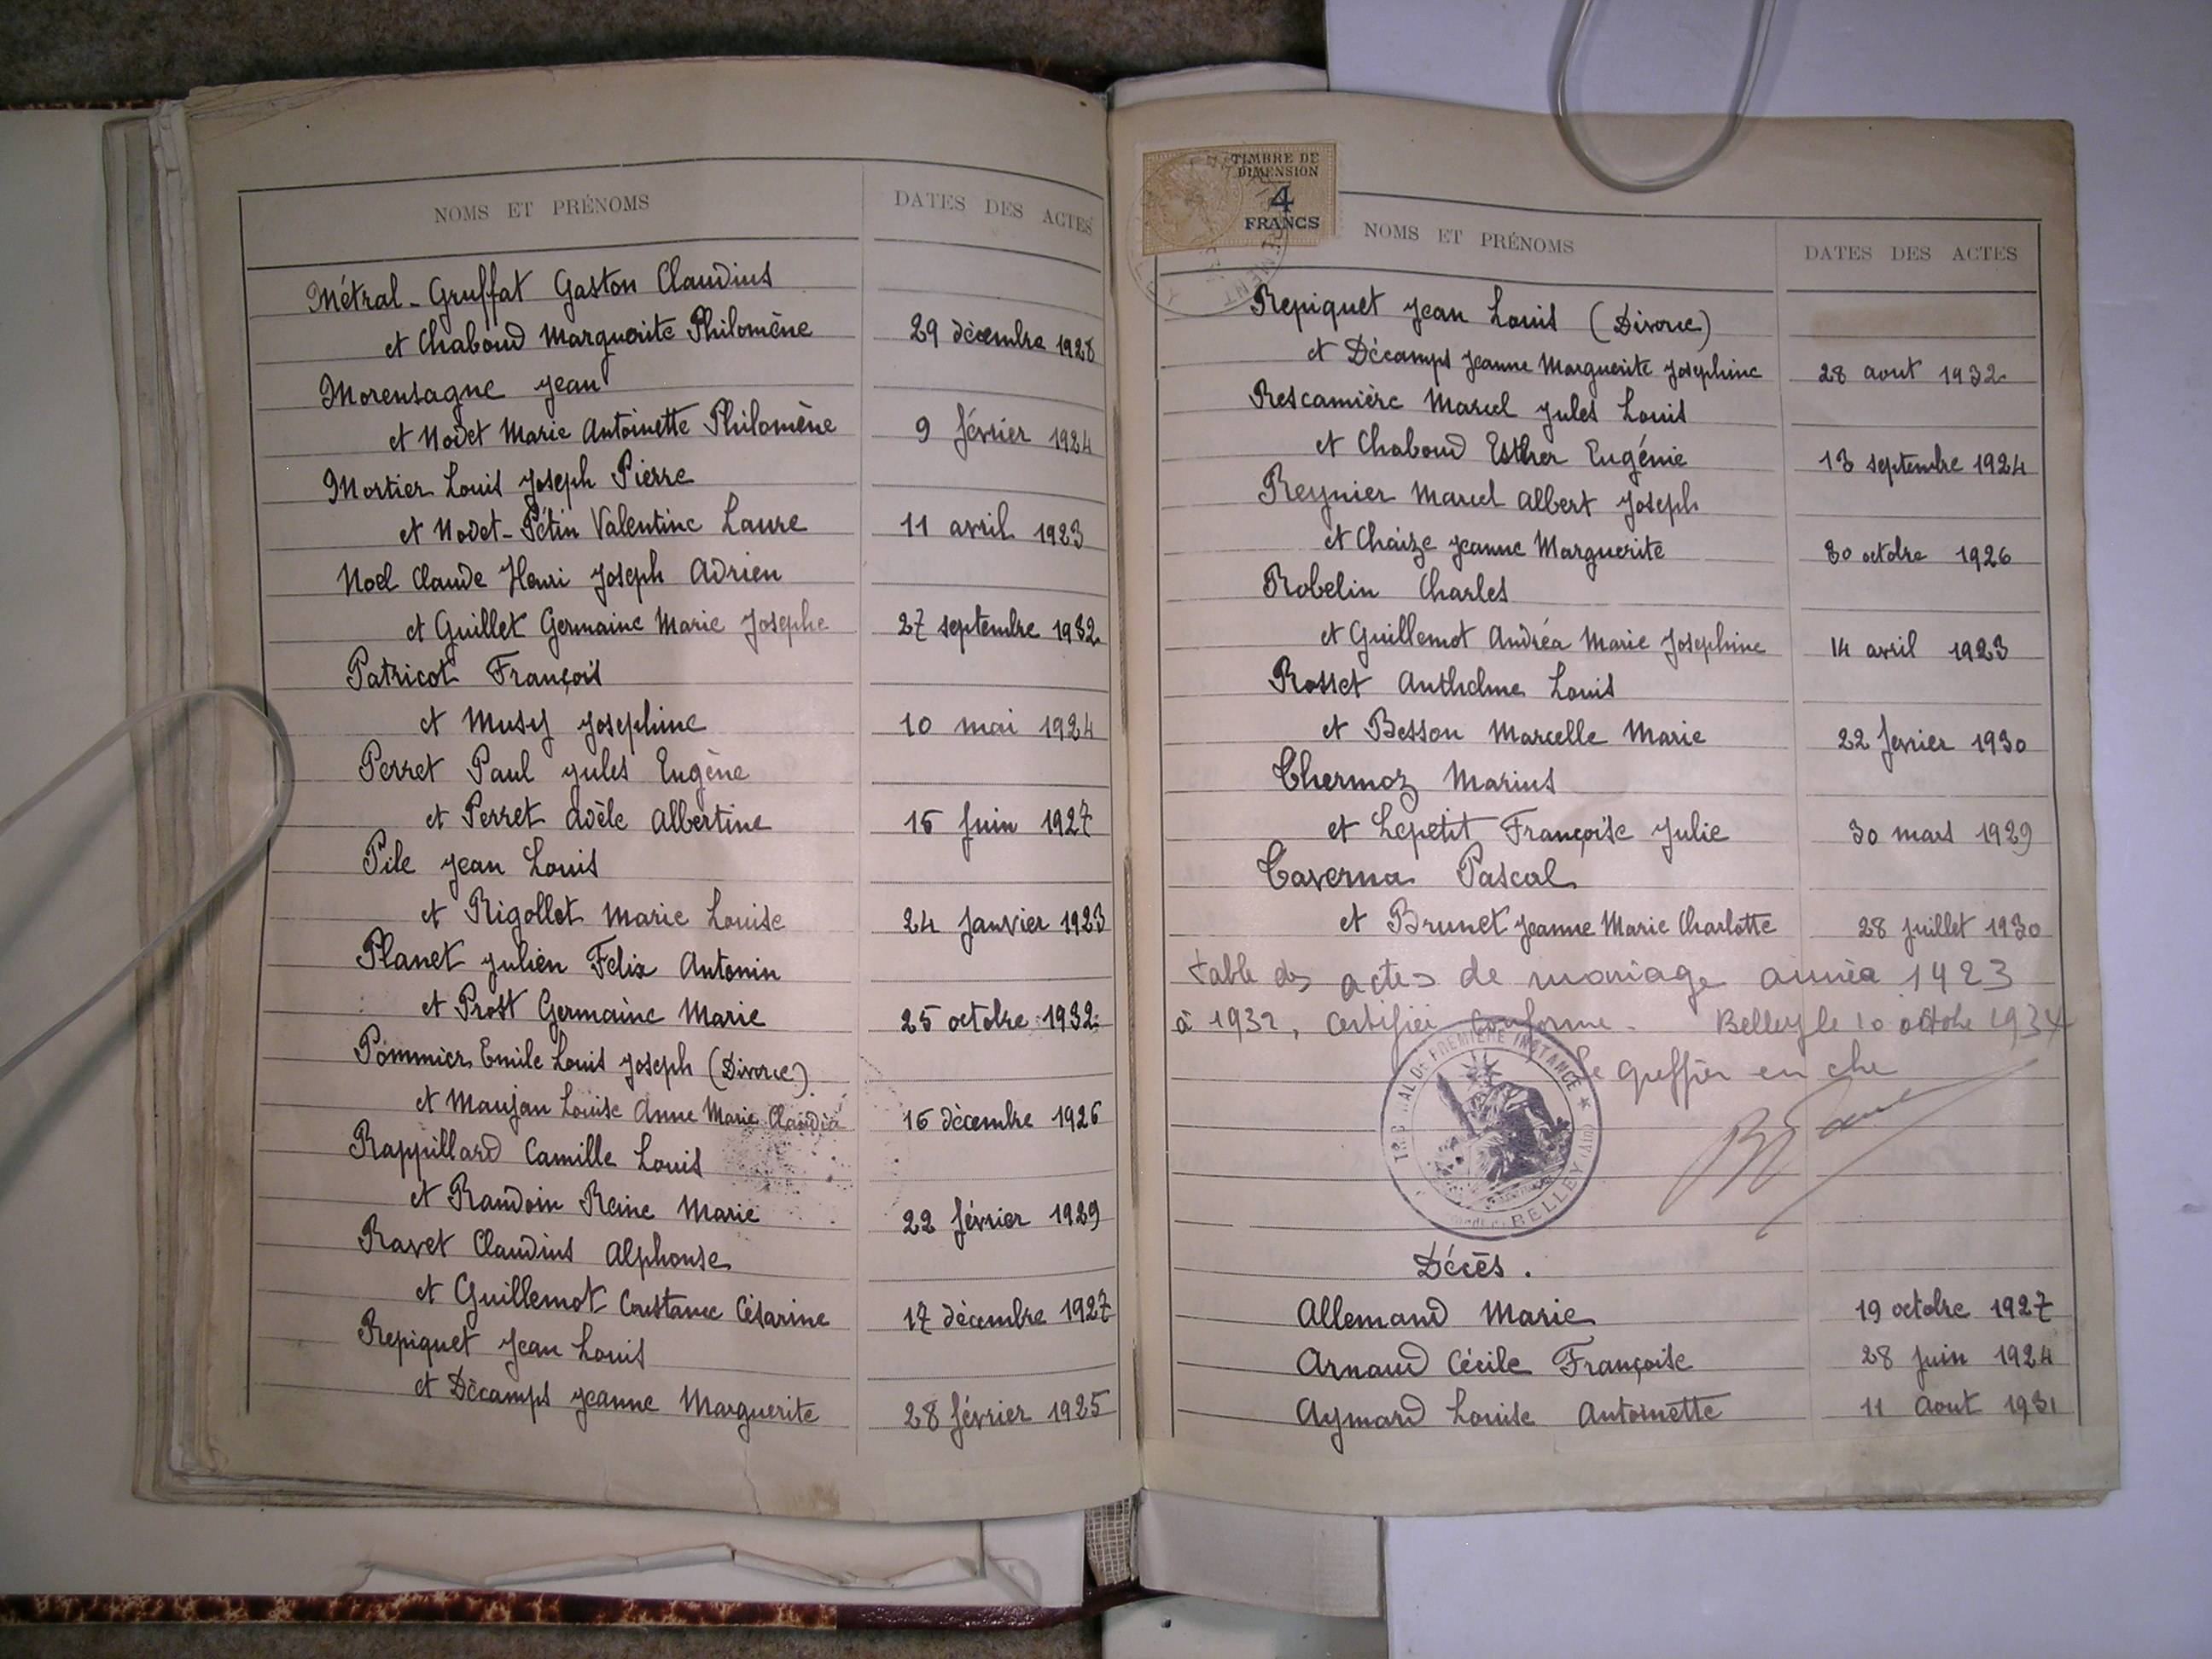 NOMS ET PRÉNOMS
DATES DES ACTES
Métral-Gruffat Gaston Claudius
et Chaboud Marguerite Philomène 29 décembre 1928
Morensagne Jean
et Nodet Marie Antoinette Philomène 9 février 1924
Mortier Louis Joseph Pierre
et Nodet-Pétin Valentine Laure 11 avril 1923
Noël Claude Henri Joseph Adrien
et Guillet Germaine Marie Josephe 27 septembre 1932
Patricot François
et Musy Josephine 10 mai 1924
Perret Paul Jules Eugène
et Perret Adèle Albertine 16 Juin 1927
Pile Jean Louis
et Rigollet Marie Louise 24 Janvier 1923
Planet Julien Felix Antonin
et Prost Germaine Marie 25 octobre 1932
Pommier Emile Louis Joseph (Divorce)
et Maujan Louise Anne Marie Claudia 16 décembre 1926
Rappillard Camille Louis
et Randoin Reine Marie 22 février 1929
Ravet Claudius Alphonse
et Guillemot Constance Césarine 17 décembre 1927
Repiquet Jean Louis
et Décamps Jeanne Marguerite 28 février 1925
TIMBRE DE
DIMENSION
4
FRANCS
NOMS ET PRÉNOMS
DATES DES ACTES
Repiquet Jean Louis (Divorce)
et Décamps Jeanne Marguerite Josephine 28 aout 1932
Rescamière Marcel Jules Louis
et Chaboud Esther Eugénie 13 septembre 1924
Reynier Marcel Albert Joseph
et Chaize Jeanne Marguerite 30 octobre 1926
Robelin Charles
et Guillemot Andréa Marie Josephine 14 avril 1923
Rosset Anthelme Louis
et Besson Marcelle Marie 22 fevrier 1930
Thermoz Marius
et Lepetit Françoise Julie 30 mars 1929
Taverna Pascal
et Brunet Jeanne Marie Charlotte 28 juillet 1930
table des actes de mariage année 1923
à 1932, certifiée conforme. Belley le 10 octobre 1934
Le greffier en che
PREMIERE INSTANCE
BELLEY (Ain)
Décès.
Allemand Marie 19 octobre 1927
Arnaud Cécile Françoise 28 Juin 1924
Aymard Louise Antoinette 11 Aout 1931